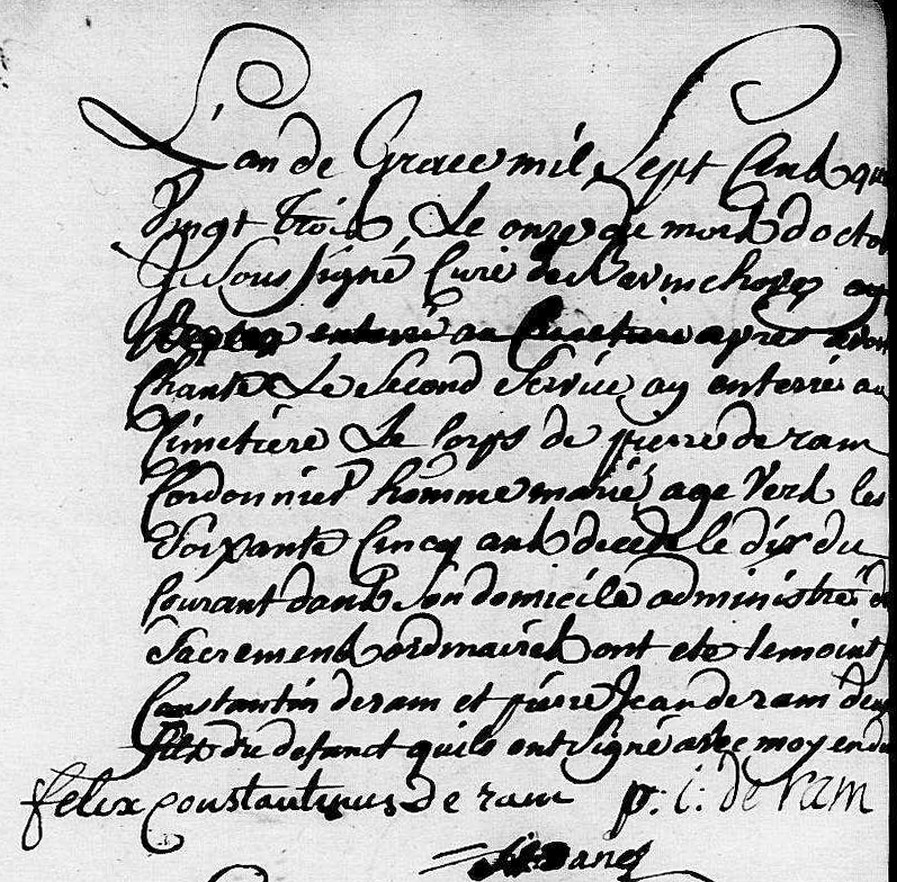 L'an de Grace mil Sept Cens qu
vingt trois Le onze du mois d'octo
Je sous signé Curé de
enterré au Cimetiere apres avoir
Chanté Le Second Service ay enterré au
Cimetiere Le Corps de pierre de ram
Cordonnier homme marié age Vers les
Soixante Cincq ans decedé le dix du
Courant dans Son domicile administré d
Sacremens ordinaires ont eté temoins
Constantin deram et pierre Jean deram deux
fils du defunct quils ont Signé avec moy endu
felix constantinus de ram p: i: de ram